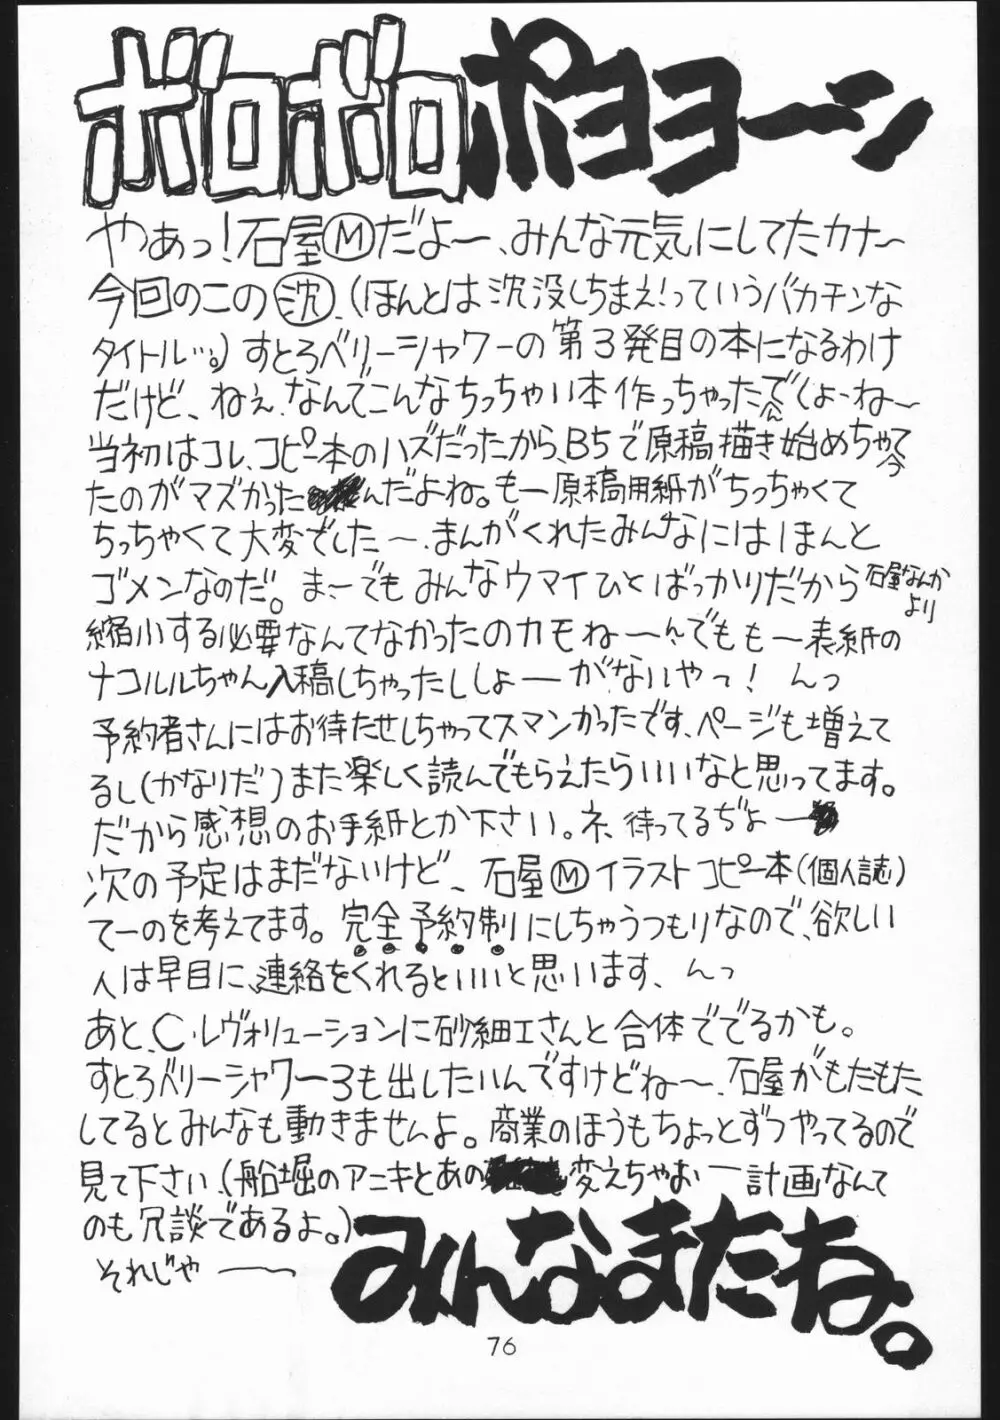 ボロボロポヨヨーン
やぁっ！石屋Ⓜだよ〜、みんな元気にしてたカナ〜
今回のこの㊋沈、（ほんとは沈没しちまえ！っていうバカチンな
タイトル…。）すとろベリーシャワーの第3発目の本になるわけ
だけど、ねぇ、なんでこんなちっちゃい本作っちゃったんでしょーね〜
当初はコレ、コピー本のハズだったから、B5で原稿描き始めちゃって
たのがマズかったんだよね。もー原稿用紙がちっちゃくて
ちっちゃくて大変でした〜、まんがくれたみんなにはほんと
ゴメンなのだ。ま〜でもみんなウマイひとばっかりだから石屋なんかより
縮小する必要なんてなかったのカモね〜んでもも〜表紙の
ナコルルちゃん入稿しちゃったししょーがないやっ！んっ
予約者さんにはお待たせしちゃってスマンかったです、ページも増えて
るし（かなりだ）また楽しく読んでもらえたらいいなと思ってます。
だから感想のお手紙とか下さい。ネ、待ってるぢょー
次の予定はまだないけど、石屋Ⓜイラストコピー本（個人誌）
てーのを考えてます。完全予約制にしちゃうつもりなので、欲しい
人は早目に、連絡をくれるといいと思います、んっ
あと、C・レヴォリューションに砂細工さんと合体ででるかも。
すとろベリーシャワー3も出したいんですけどね〜、石屋がもたもた
してるとみんなも動きませんよ。商業のほうもちょっとずつやってるので
見て下さい、（船堀のアニキとあの変えちゃおー計画なんて
のも冗談であるよ。）
それじゃ――〜
みんなまたね。
76